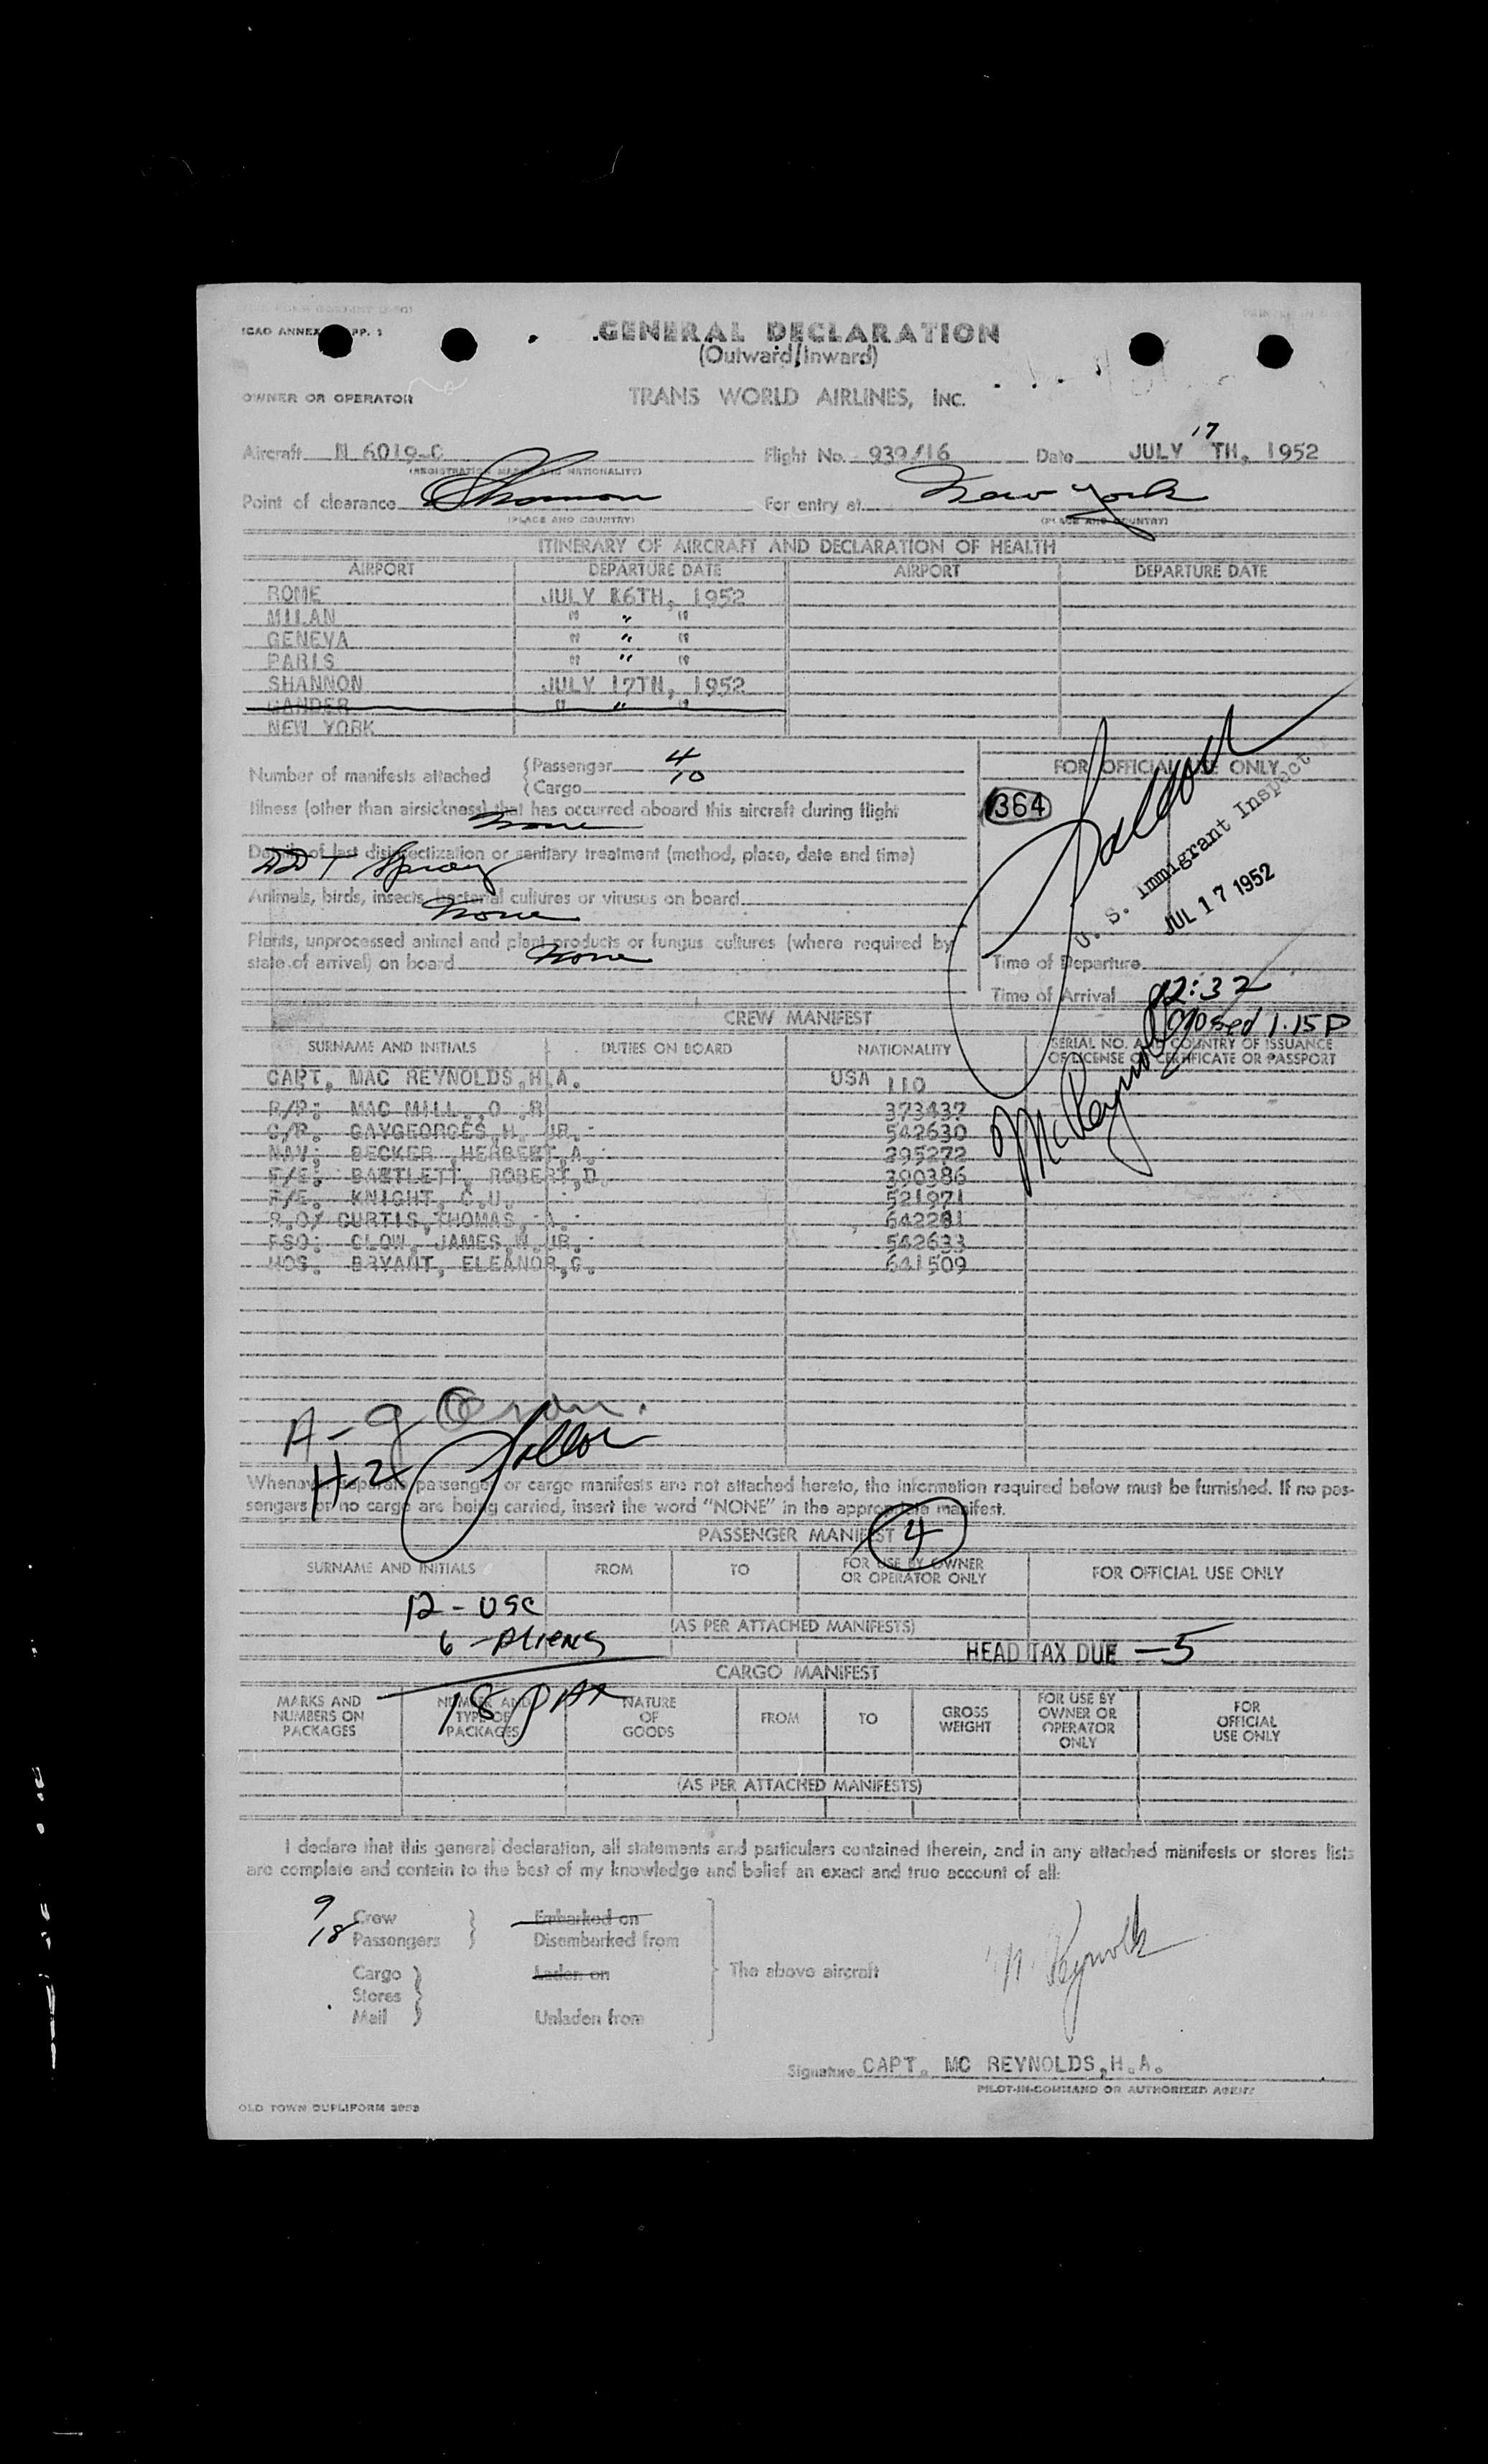 ICAO ANNEX PP. 1
GENERAL DECLARATION
(Outward/Inward)
OWNER OR OPERATOR
TRANS WORLD AIRLINES, INC.
Aircraft N 6019-C Flight No. 939/16 Date JULY 17 TH, 1952
(REGISTRATION MARKS AND NATIONALITY)
Point of clearance Shannon For entry at New York
(PLACE AND COUNTRY) (PLACE AND COUNTRY)
ITINERARY OF AIRCRAFT AND DECLARATION OF HEALTH
AIRPORT DEPARTURE DATE AIRPORT DEPARTURE DATE
ROME JULY 16TH, 1952
MILAN " " "
GENEVA " " "
PARIS " " "
SHANNON JULY 17TH, 1952
GANDER " " "
NEW YORK
Number of manifests attached { Passenger 4
{ Cargo 10
FOR OFFICIAL USE ONLY
364
Illness (other than airsickness) that has occurred aboard this aircraft during flight
None
Details of last disinsectization or sanitary treatment (method, place, date and time)
DDT Spray
Animals, birds, insects, bacterial cultures or viruses on board
None
Plants, unprocessed animal and plant products or fungus cultures (where required by
state of arrival) on board None
U. S. Immigrant Inspector
JUL 17 1952
Time of Departure
Time of Arrival 12:32
Closed 1.15 P
CREW MANIFEST
SURNAME AND INITIALS DUTIES ON BOARD NATIONALITY SERIAL NO. AND COUNTRY OF ISSUANCE
OF LICENSE OR CERTIFICATE OR PASSPORT
CAPT, MAC REYNOLDS,H.A. USA 110
R/P: MAC MILL,,O .R 373437
C/P. GAYGEORGES,H. JR. 542630
NAV: BECKER ,HERBERT,A. 295272
F/E. BARTLETT, ROBERT,D. 390386
F/E. KNIGHT, C.U. 521971
R.O/ CURTIS,THOMAS, A. 642281
FSO: CLOW, JAMES,W.JR. 542633
HOS. BRYANT, ELEANOR,C. 641509
McReynolds
A - 9
H-2
Whenever separate passenger or cargo manifests are not attached hereto, the information required below must be furnished. If no pas-
sengers or no cargo are being carried, insert the word "NONE" in the appropriate manifest.
PASSENGER MANIFEST 4
SURNAME AND INITIALS FROM TO FOR USE BY OWNER
OR OPERATOR ONLY FOR OFFICIAL USE ONLY
12 - USC
(AS PER ATTACHED MANIFESTS)
6 - ALIENS
HEAD TAX DUE - 5
18 PAX
CARGO MANIFEST
MARKS AND
NUMBERS ON
PACKAGES
NUMBER AND
TYPE OF
PACKAGES
NATURE
OF
GOODS
FROM TO
GROSS
WEIGHT
FOR USE BY
OWNER OR
OPERATOR
ONLY
FOR
OFFICIAL
USE ONLY
(AS PER ATTACHED MANIFESTS)
I declare that this general declaration, all statements and particulars contained therein, and in any attached manifests or stores lists
are complete and contain to the best of my knowledge and belief an exact and true account of all:
9 Crew } Embarked on
18 Passengers } Disembarked from
Cargo } Laden on
Stores }
Mail } Unladen from
The above aircraft
McReynolds
Signature CAPT. MC REYNOLDS,H.A.
PILOT-IN-COMMAND OR AUTHORIZED AGENT
OLD TOWN DUPLIFORM